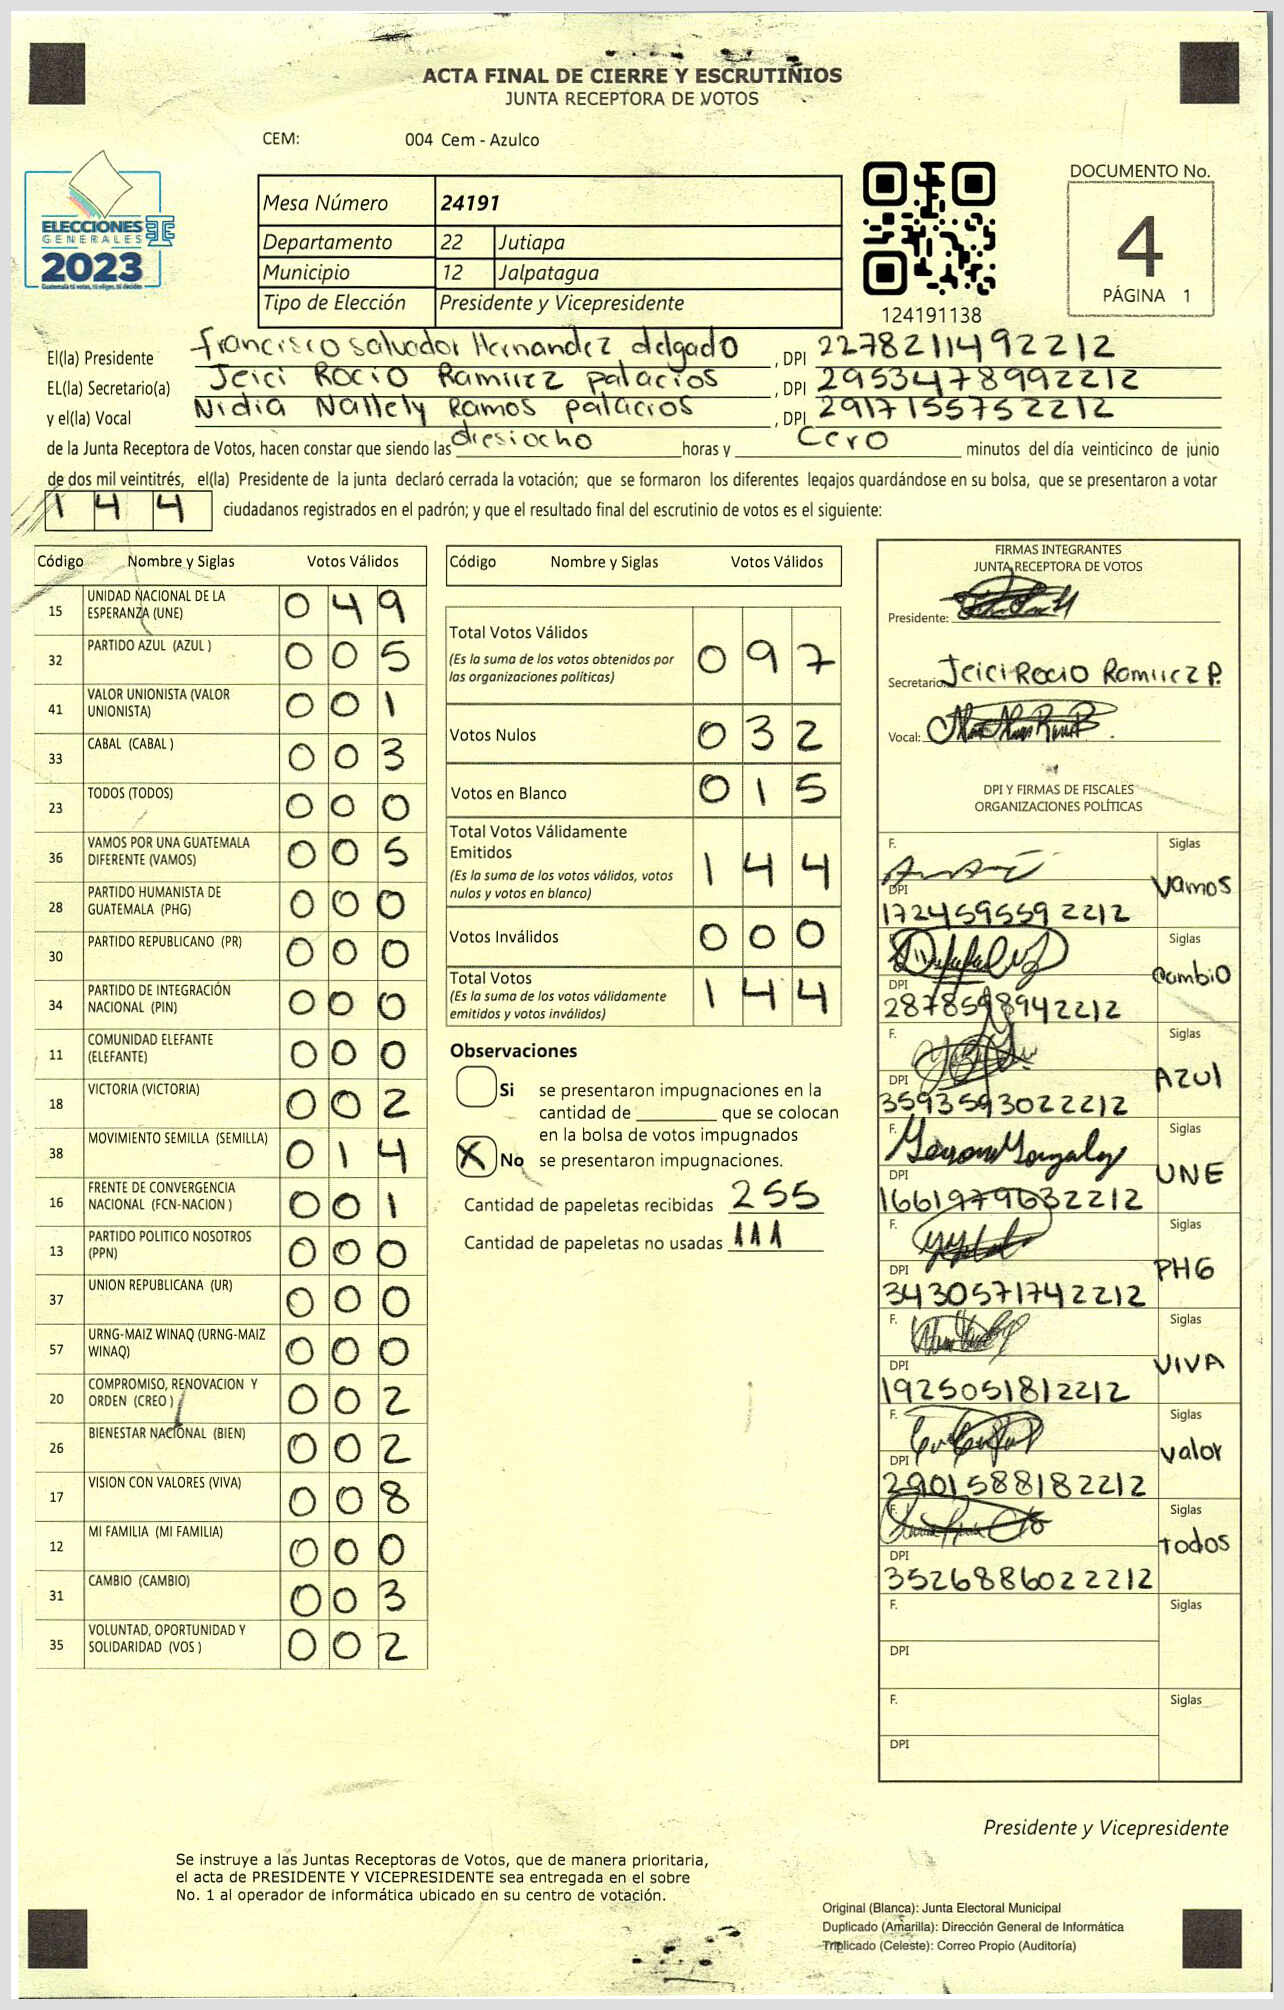 ACTA FINAL DE CIERRE Y ESCRUTINIOS
JUNTA RECEPTORA DE VOTOS
CEM: 004 Cem - Azulco
ELECCIONES
GENERALES
2023
Guatemala tú votas, tú eliges, tú decides
Mesa Número 24191
Departamento 22 Jutiapa
Municipio 12 Jalpatagua
Tipo de Elección Presidente y Vicepresidente
124191138
DOCUMENTO No.
4
PÁGINA 1
El(la) Presidente francisco salvador Hernandez delgado , DPI 2278211492212
EL(la) Secretario(a) Jeici Rocio Ramirez palacios , DPI 2953478992212
y el(la) Vocal Nidia Nallely Ramos palacios , DPI 2917155752212
de la Junta Receptora de Votos, hacen constar que siendo las diesiocho horas y Cero minutos del día veinticinco de junio
de dos mil veintitrés, el(la) Presidente de la junta declaró cerrada la votación; que se formaron los diferentes legajos guardándose en su bolsa, que se presentaron a votar
1 4 4 ciudadanos registrados en el padrón; y que el resultado final del escrutinio de votos es el siguiente:
Código Nombre y Siglas Votos Válidos
15 UNIDAD NACIONAL DE LA ESPERANZA (UNE) 0 4 9
32 PARTIDO AZUL (AZUL ) 0 0 5
41 VALOR UNIONISTA (VALOR UNIONISTA) 0 0 1
33 CABAL (CABAL ) 0 0 3
23 TODOS (TODOS) 0 0 0
36 VAMOS POR UNA GUATEMALA DIFERENTE (VAMOS) 0 0 5
28 PARTIDO HUMANISTA DE GUATEMALA (PHG) 0 0 0
30 PARTIDO REPUBLICANO (PR) 0 0 0
34 PARTIDO DE INTEGRACIÓN NACIONAL (PIN) 0 0 0
11 COMUNIDAD ELEFANTE (ELEFANTE) 0 0 0
18 VICTORIA (VICTORIA) 0 0 2
38 MOVIMIENTO SEMILLA (SEMILLA) 0 1 4
16 FRENTE DE CONVERGENCIA NACIONAL (FCN-NACION ) 0 0 1
13 PARTIDO POLITICO NOSOTROS (PPN) 0 0 0
37 UNION REPUBLICANA (UR) 0 0 0
57 URNG-MAIZ WINAQ (URNG-MAIZ WINAQ) 0 0 0
20 COMPROMISO, RENOVACION Y ORDEN (CREO ) 0 0 2
26 BIENESTAR NACIONAL (BIEN) 0 0 2
17 VISION CON VALORES (VIVA) 0 0 8
12 MI FAMILIA (MI FAMILIA) 0 0 0
31 CAMBIO (CAMBIO) 0 0 3
35 VOLUNTAD, OPORTUNIDAD Y SOLIDARIDAD (VOS ) 0 0 2
Código Nombre y Siglas Votos Válidos
Total Votos Válidos 0 9 7
(Es la suma de los votos obtenidos por
las organizaciones politicas)
Votos Nulos 0 3 2
Votos en Blanco 0 1 5
Total Votos Válidamente
Emitidos 1 4 4
(Es la suma de los votos válidos, votos
nulos y votos en blanco)
Votos Inválidos 0 0 0
Total Votos 1 4 4
(Es la suma de los votos válidamente
emitidos y votos inválidos)
Observaciones
Si se presentaron impugnaciones en la
cantidad de ________ que se colocan
en la bolsa de votos impugnados
X No se presentaron impugnaciones.
Cantidad de papeletas recibidas 255
Cantidad de papeletas no usadas 111
FIRMAS INTEGRANTES
JUNTA RECEPTORA DE VOTOS
Presidente:
Secretario: Jeici Rocio Ramirez P.
Vocal:
DPI Y FIRMAS DE FISCALES
ORGANIZACIONES POLÍTICAS
F. Siglas
Vamos
DPI
1724595592212
F. Siglas
Cambio
DPI
2878598942212
F. Siglas
Azul
DPI
3593593022212
F. Siglas
UNE
DPI
1661979632212
F. Siglas
PHG
DPI
3430571742212
F. Siglas
VIVA
DPI
1925051812212
F. Siglas
valor
DPI
2901588182212
F. Siglas
Todos
DPI
3526886022212
F. Siglas
DPI
F. Siglas
DPI
Presidente y Vicepresidente
Se instruye a las Juntas Receptoras de Votos, que de manera prioritaria,
el acta de PRESIDENTE Y VICEPRESIDENTE sea entregada en el sobre
No. 1 al operador de informática ubicado en su centro de votación.
Original (Blanca): Junta Electoral Municipal
Duplicado (Amarilla): Dirección General de Informática
Triplicado (Celeste): Correo Propio (Auditoría)